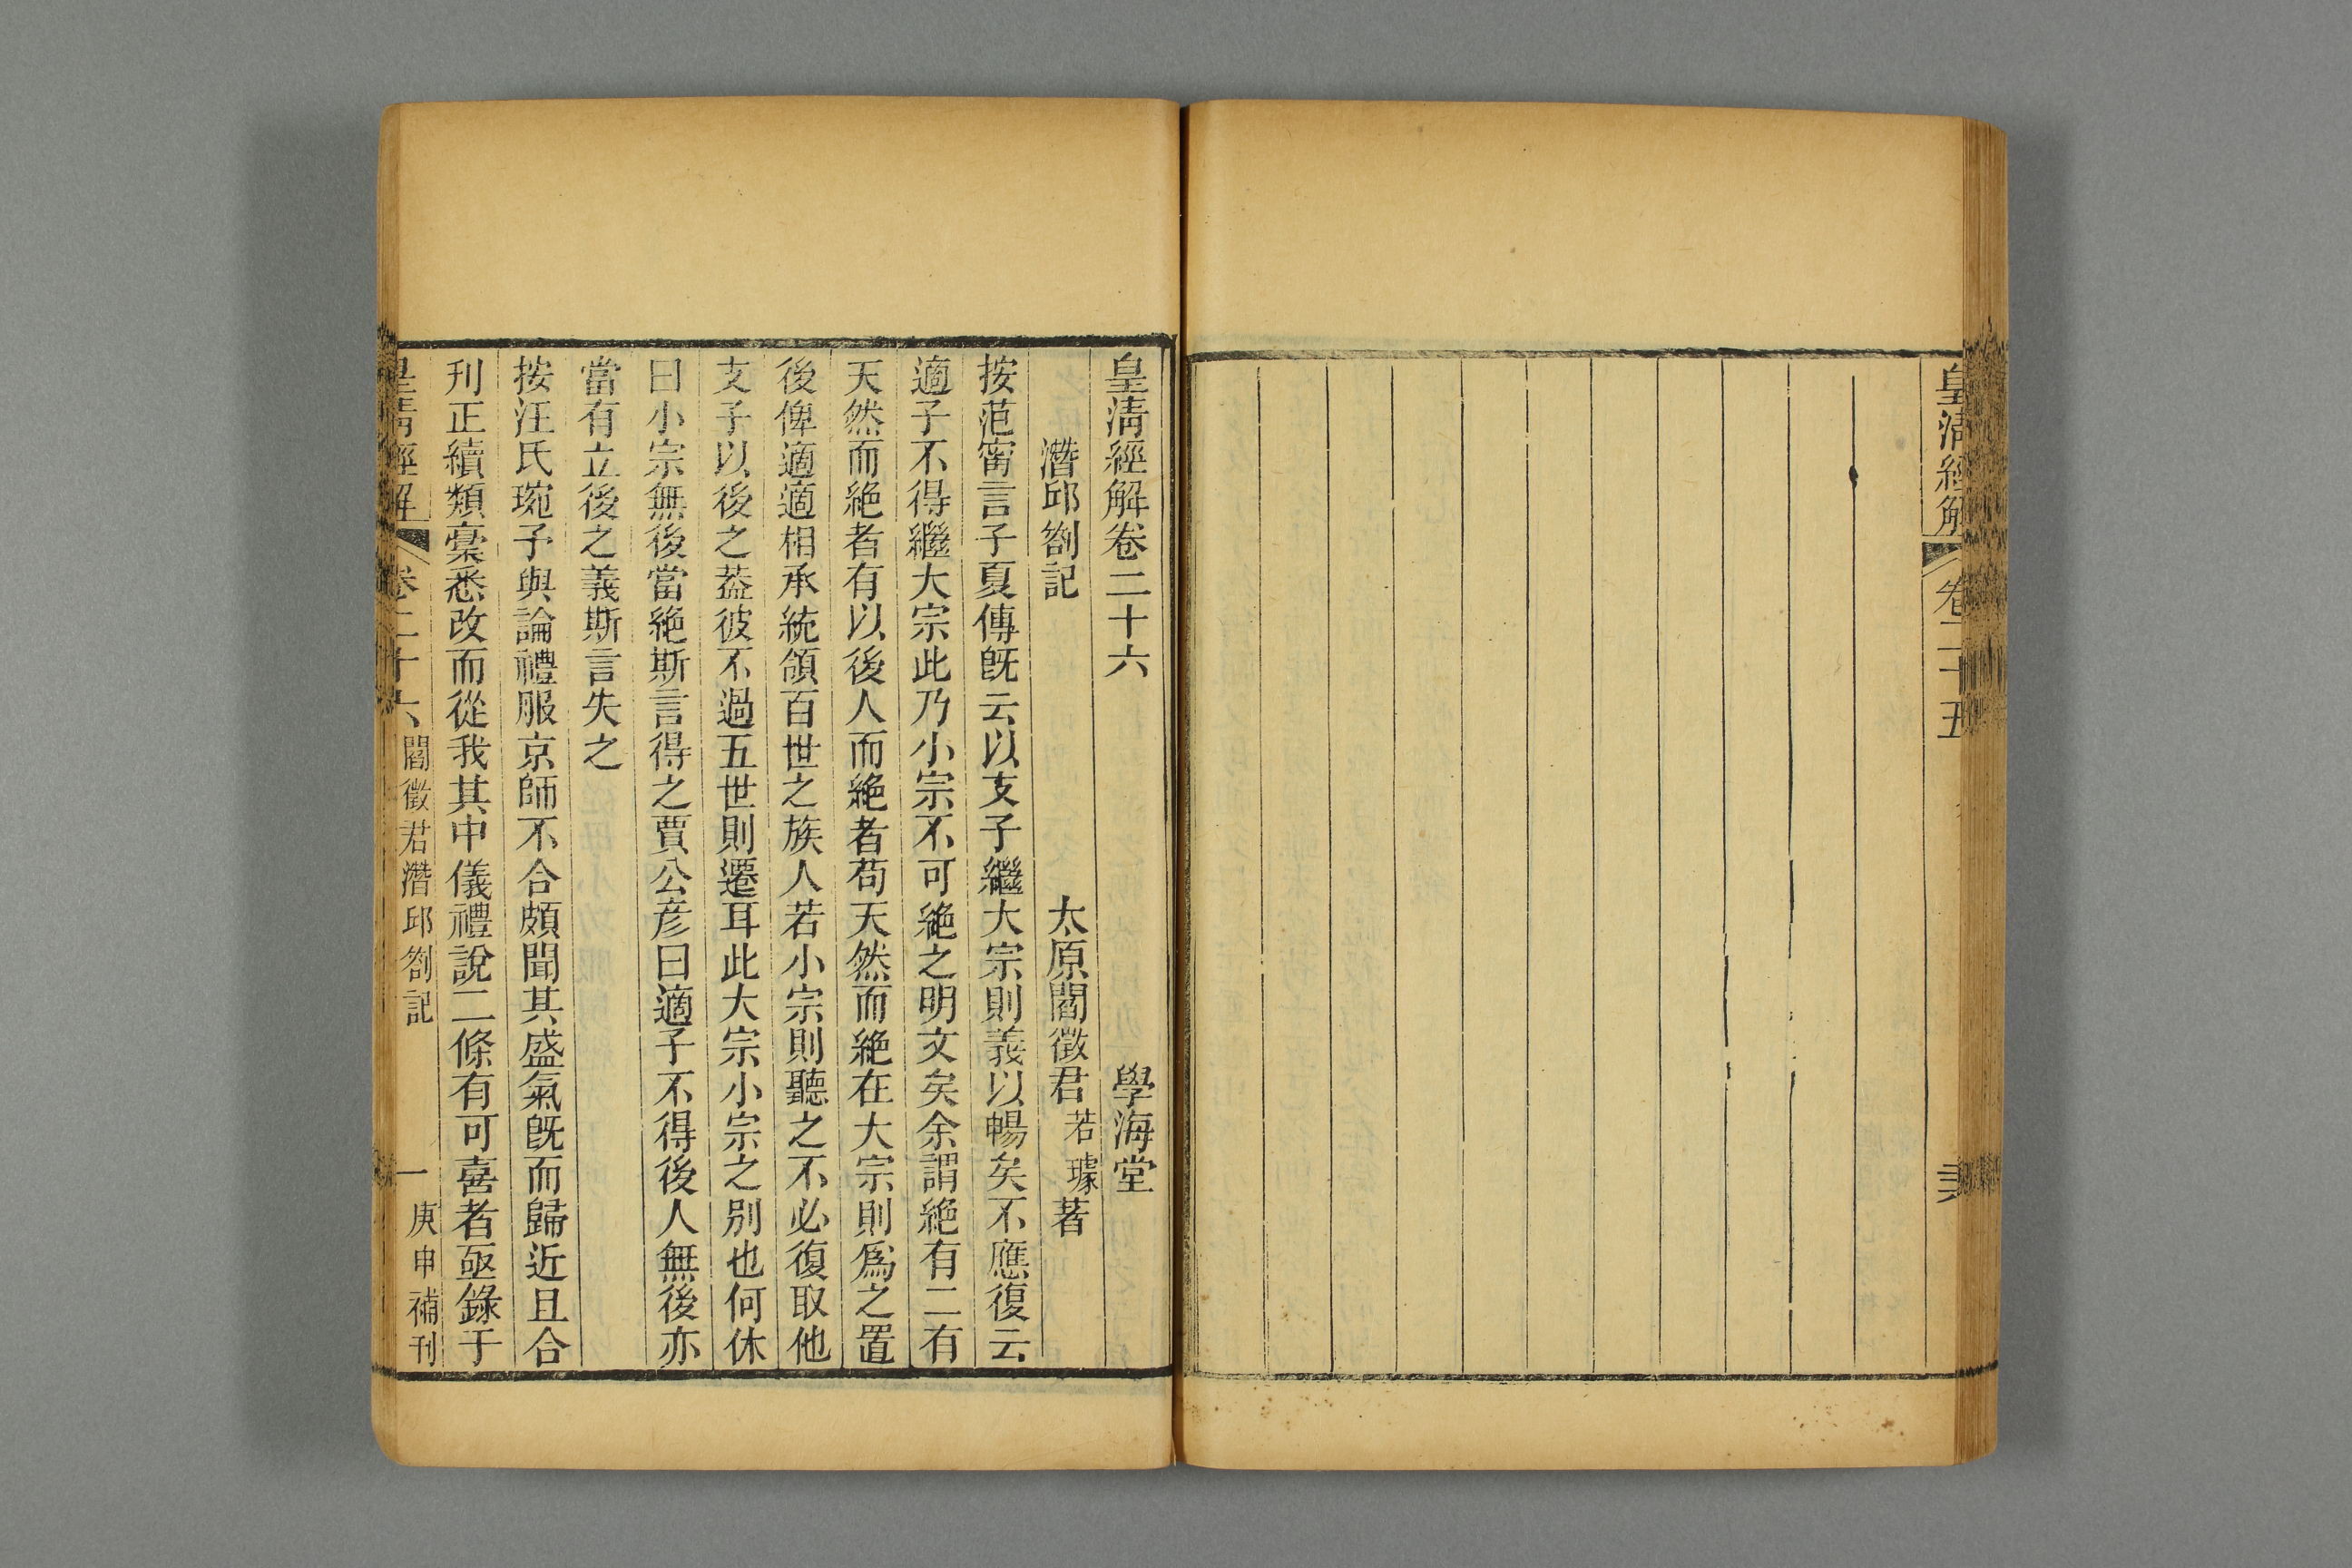 皇清經解
卷二十五
皇清經解卷二十六
學海堂
潛邱劄記
太原閻徵君若璩著
按范甯言子夏傳旣云以支子繼大宗則義以暢矣不應復云
適子不得繼大宗此乃小宗不可絕之明文矣余謂絕有二有
天然而絕者有以後人而絕者苟天然而絕在大宗則爲之置
後俾適適相承統領百世之族人若小宗則聽之不必復取他
支子以後之葢彼不過五世則遷耳此大宗小宗之別也何休
曰小宗無後當絕斯言得之賈公彥曰適子不得後人無後亦
當有立後之義斯言失之
按汪氏琬予與論禮服京師不合頗聞其盛氣旣而歸近且合
刋正續類稾悉改而從我其中儀禮說二條有可喜者亟錄于
皇清經解
卷二十六
閻徵君潛邱劄記
一
庚申補刊